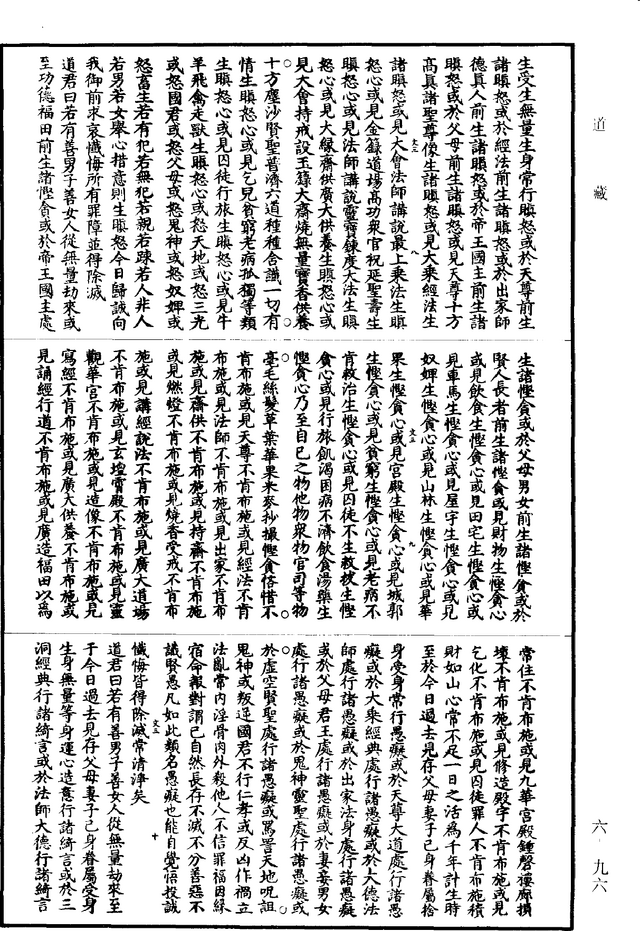 道藏
生受生無量生身常行瞋怒或於天尊前生
諸瞋怒或於經法前生諸瞋怒或於出家師
德真人前生諸瞋怒或於帝王國主前生諸
瞋怒或於父母前生諸瞋怒或見天尊十方
高真諸聖尊像生諸瞋怒或見大乘經法生
諸瞋怒或見大會法師講說最上乘法生瞋
怒心或見金籙道場高功眾官祝延聖壽生
瞋怒心或見法師講說靈寶鍊度大法生瞋
怒心或見大緣齋供廣大供養生瞋怒心或
見大會持戒設玉籙大齋燒無量寶香供養
十方塵沙賢聖普濟六道種種含識一切有
情生瞋怒心或見乞兒貧窮老病孤獨等類
生瞋怒心或見囚徒行旅生瞋怒心或見牛
羊飛禽走獸生瞋怒心或怒天地或怒三光
或怒國君或怒父母或怒鬼神或怒奴婢或
怒畜生若有犯若無犯若親若踈若人非人
若男若女舉心措意則生瞋怒今日歸誠向
我御前求哀懺悔所有罪障並得除滅
道君曰若有善男子善女人從無量劫來或
至功德福田前生諸慳貪或於帝王國主處
生諸慳貪或於父母男女前生諸慳貪或於
賢人長者前生諸慳貪或見財物生慳貪心
或見飲食生慳貪心或見田宅生慳貪心或
見車馬生慳貪心或見屋宇生慳貪心或見
奴婢生慳貪心或見山林生慳貪心或見華
果生慳貪心或見宮殿生慳貪心或見城郭
生慳貪心或見貧窮生慳貪心或見老病不
肯救治生慳貪心或見囚徒不生救拔生慳
貪心或見行旅飢渴困病不濟飲食湯藥生
慳貪心乃至自己之物他物眾物官司等物
毫毛絲髮草葉華果米麥抄撮慳貪悋惜不
肯布施或見天尊不肯布施或見經法不肯
布施或見法師不肯布施或見出家不肯布
施或見齋供不肯布施或見持齋不肯布施
或見燃燈不肯布施或見燒香受戒不肯布
施或見講經說法不肯布施或見廣大道場
不肯布施或見玄壇寶殿不肯布施或見靈
觀華宮不肯布施或見造像不肯布施或見
寫經不肯布施或見廣大供養不肯布施或
見誦經行道不肯布施或見廣造福田以為
常住不肯布施或見九華宮殿鍾磬樓廊損
壞不肯布施或見修造殿宇不肯布施或見
乞化不肯布施或見囚徒罪人不肯布施積
財如山心常不足一日之活為千年計生時
至於今日過去見存父母妻子己身眷屬捨
身受身常行愚癡或於天尊大道處行諸愚
癡或於大乘經典處行諸愚癡或於大德法
師處行諸愚癡或於出家法身處行諸愚癡
或於父母君王處行諸愚癡或於妻妾男女
處行諸愚癡或於鬼神靈聖處行諸愚癡或
於虛空賢聖處行諸愚癡或罵詈天地呪詛
鬼神或叛逆國君不行仁孝或反凶作禍立
法亂常內淫骨肉外殺他人不信罪福因緣
宿命報對謂己自然長存不滅不分善惡不
識賢愚凡如此類名愚癡也能自覺悟投誠
懺悔皆得除滅常清淨矣
道君曰若有善男子善女人從無量劫來至
于今日過去見存父母妻子己身眷屬受身
生身無量等身運心造意行諸綺言或於三
洞經典行諸綺言或於法師大德行諸綺言
六·九六